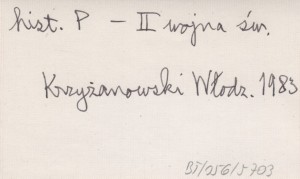 hist. P - II wojna św.
Krzyżanowski Włodz. 1983
BJ/256/5703